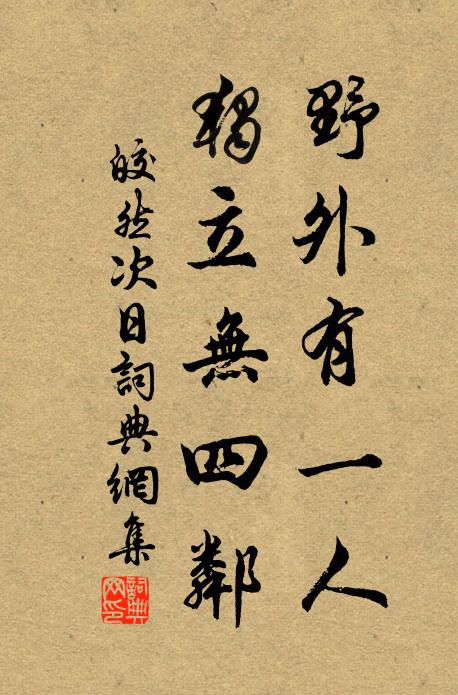 野外有一人
獨立無四鄰
皎然次日詞典網集
詞典網印